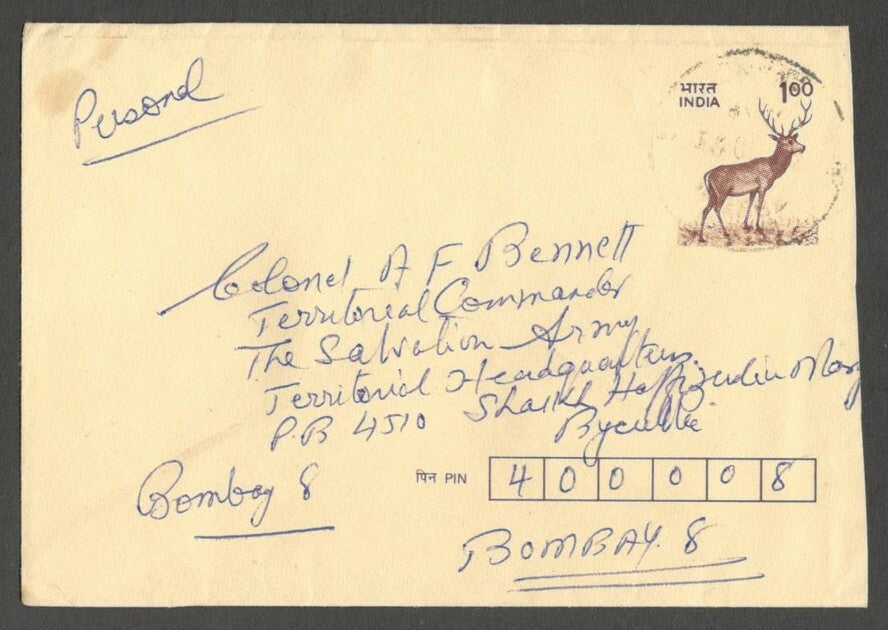 Personal
भारत 100
INDIA
Colonel A F Bennett
Territorial Commander
The Salvation Army
Territorial Headquarters
P.B 4510 Shaikh Haffizudin Marg
Byculla
पिन PIN 400008
Bombay 8
BOMBAY. 8